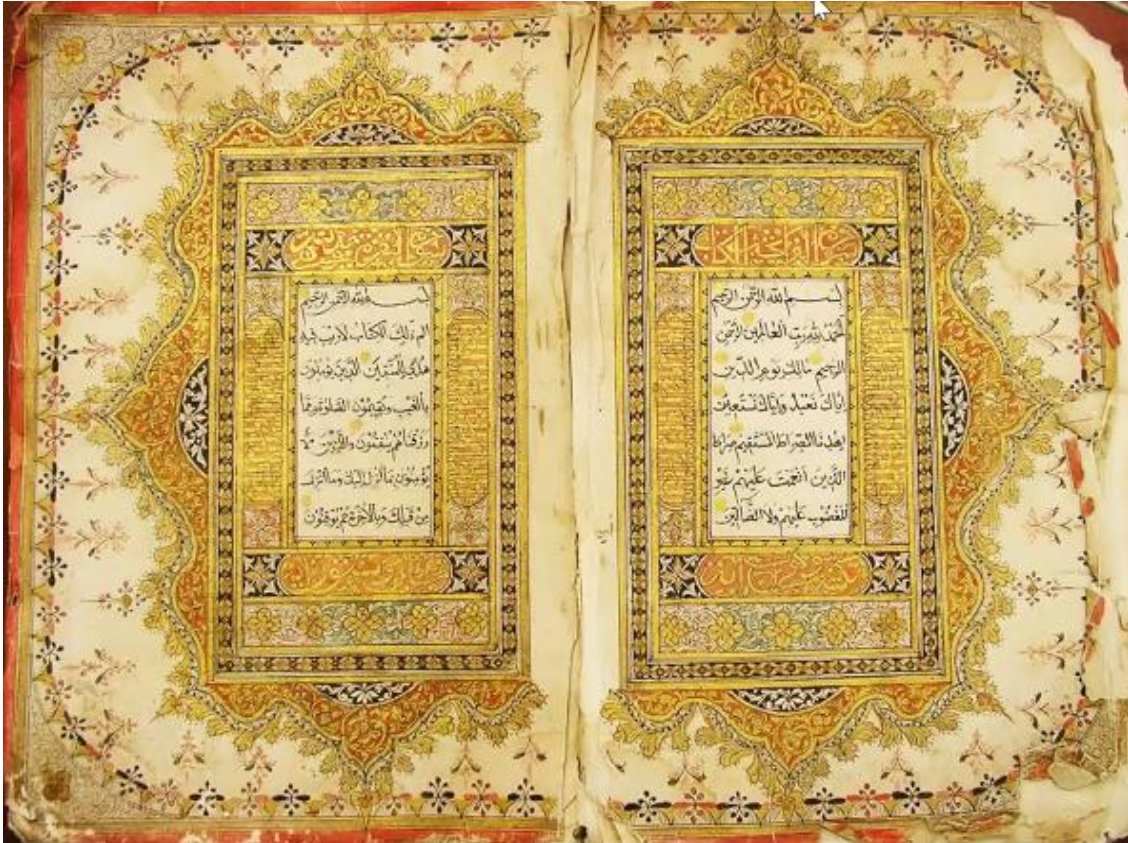 سورة الفاتحة الكتاب
بسم الله الرحمن الرحيم
الحمد لله رب العالمين الرحمن
الرحيم مالك يوم الدين
إياك نعبد وإياك نستعين
اهدنا الصراط المستقيم صراط
الذين أنعمت عليهم غير
المغضوب عليهم ولا الضالين
بسم الله الرحمن الرحيم
الم ذلك الكتاب لا ريب فيه
هدى للمتقين الذين يؤمنون
بالغيب ويقيمون الصلوة ومما
رزقناهم ينفقون والذين
يؤمنون بما أنزل إليك وما أنزل
من قبلك وبالآخرة هم يوقنون